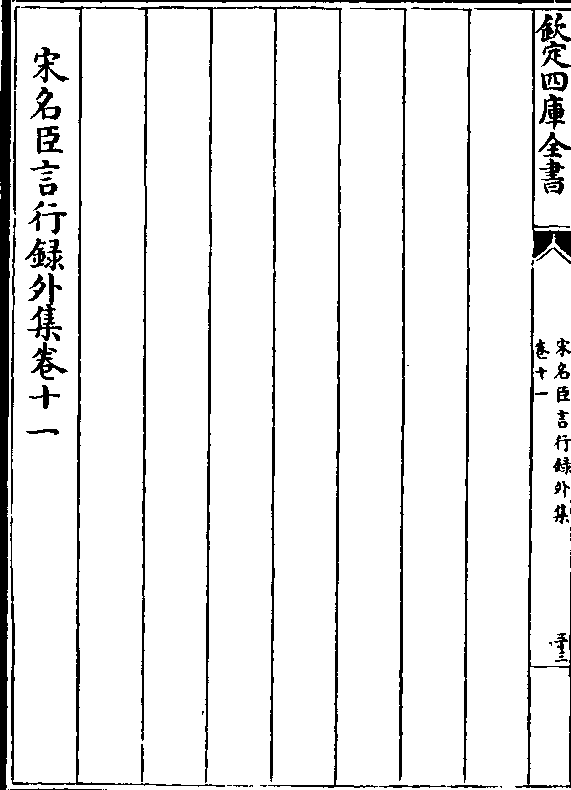 欽定四庫全書
宋名臣言行録外集
卷十一
宋名臣言行録外集卷十一